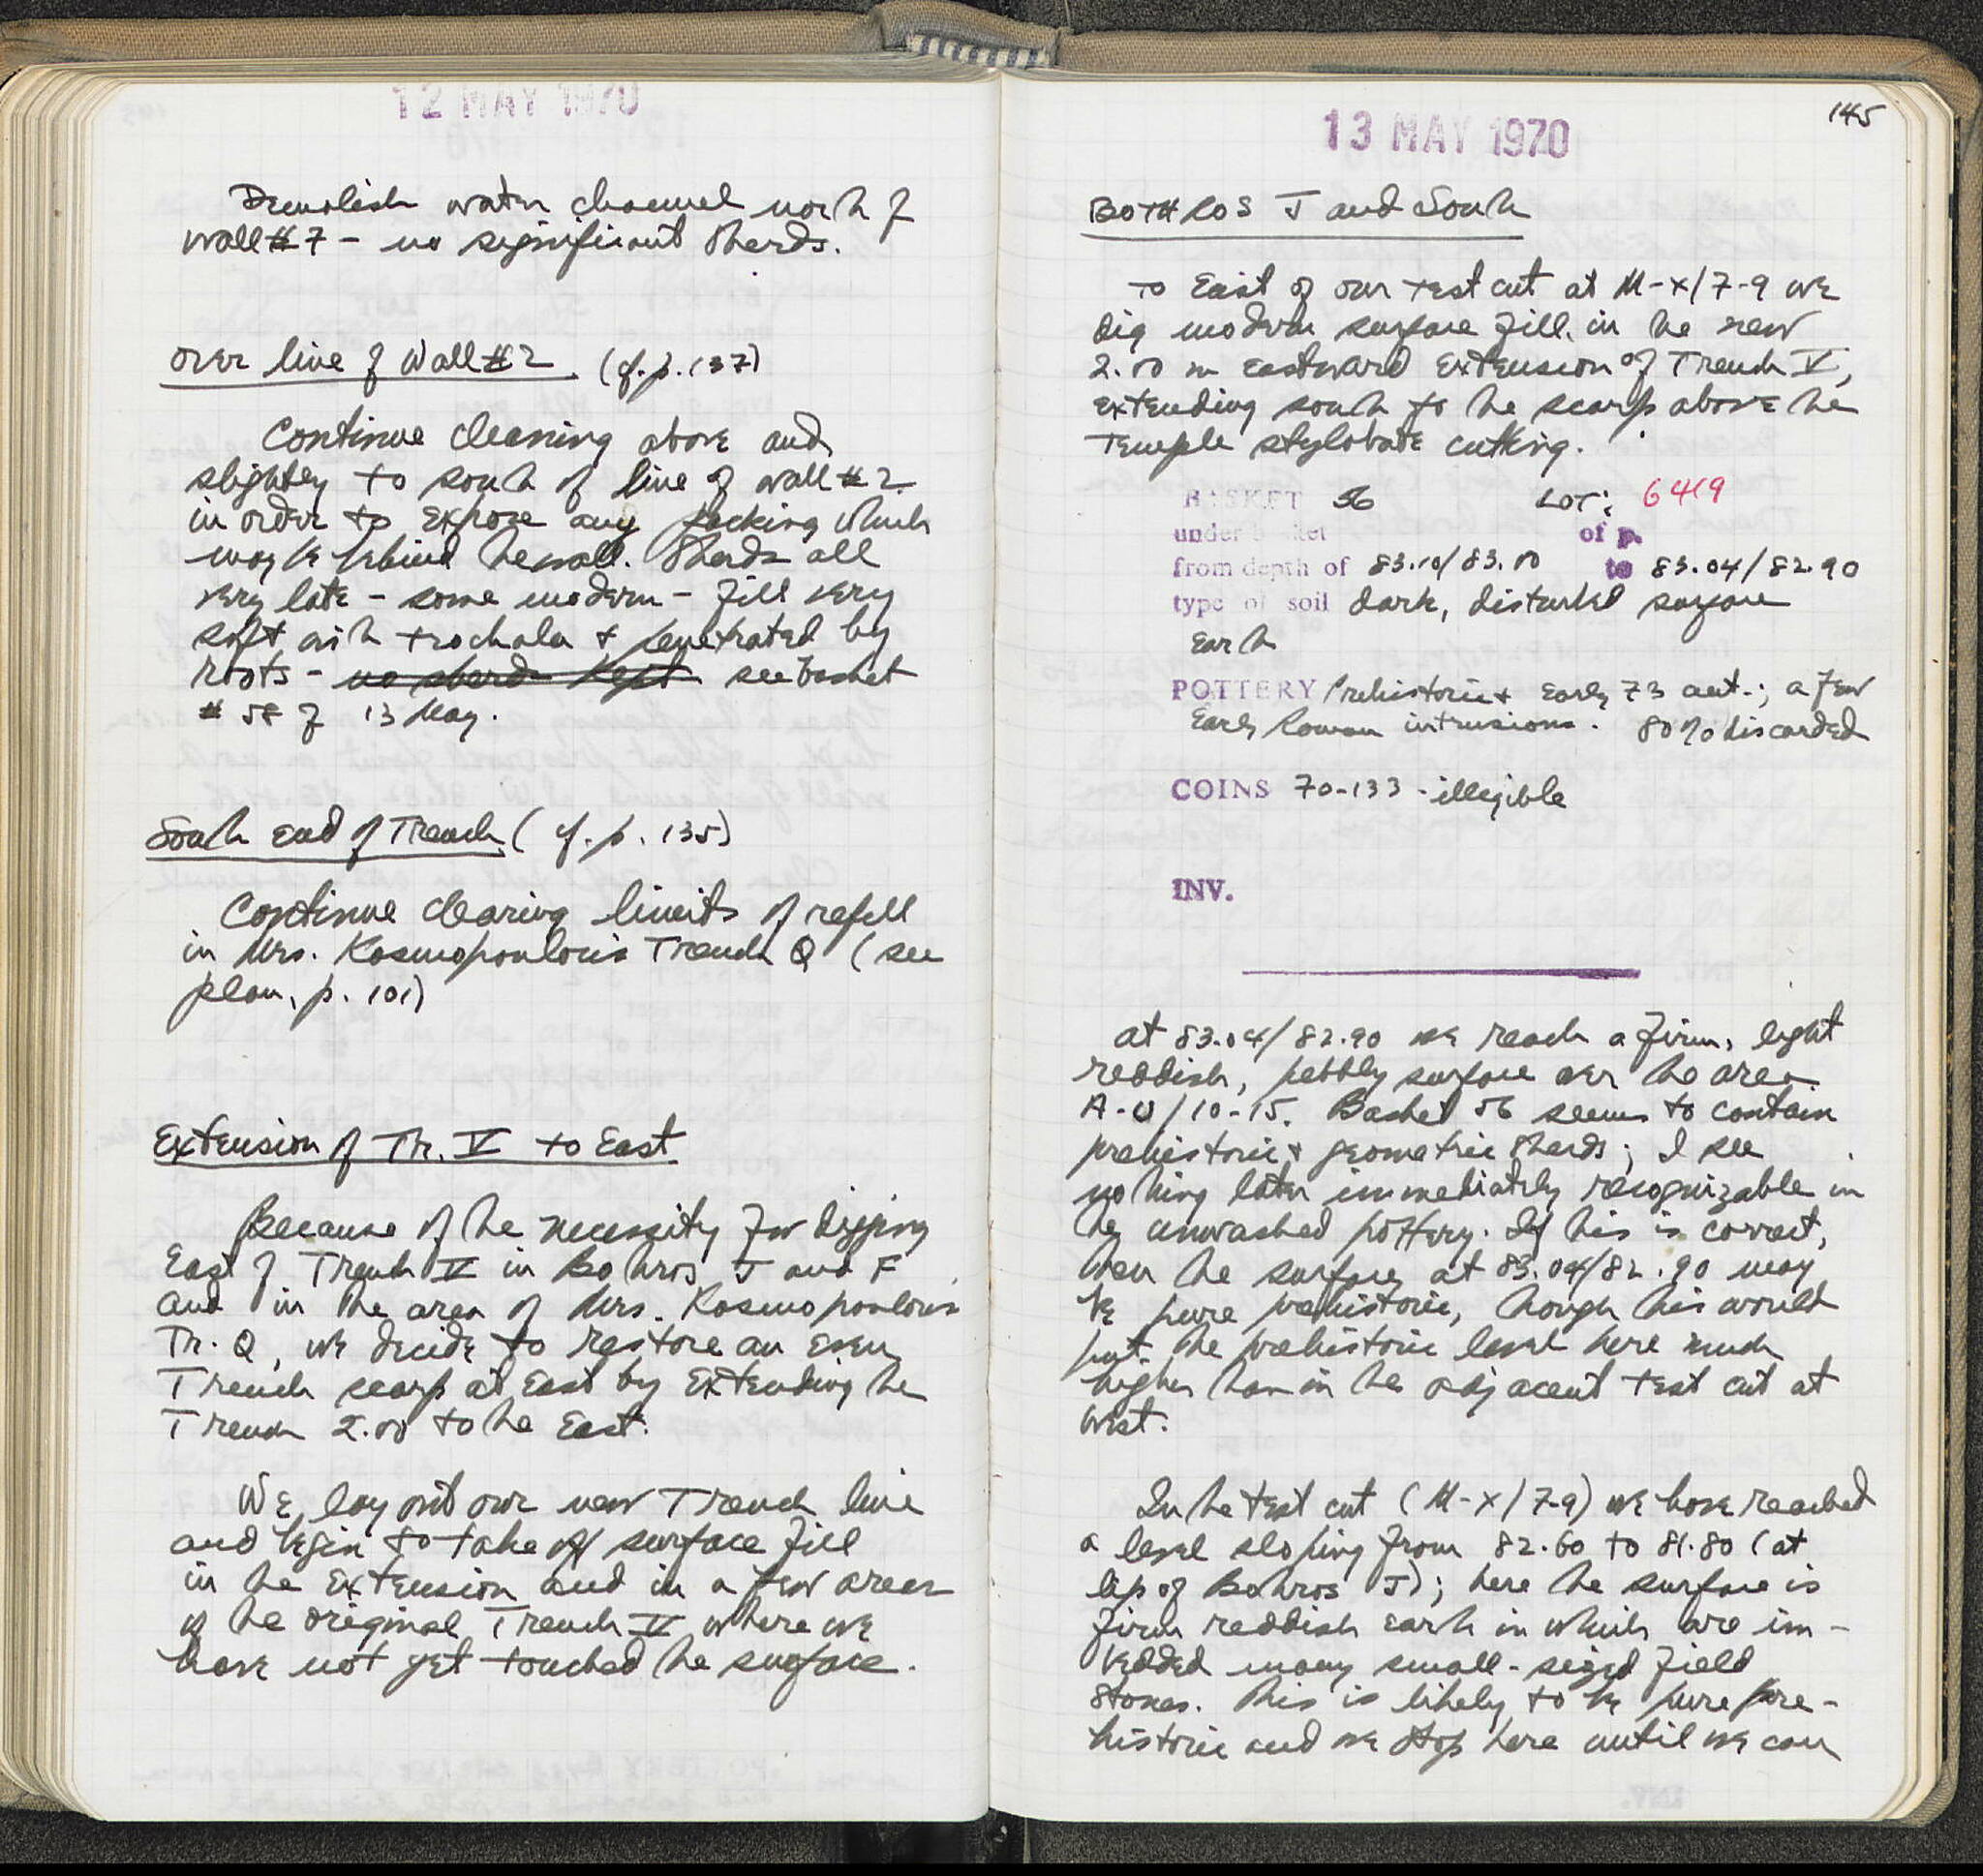 12 MAY 1970
Demolish water channel north of
wall #7 - no significant sherds.
over line of Wall #2 (cf. p. 137)
Continue cleaning above and
slightly to south of line of wall #2
in order to expose any packing which
may be behind the wall. Sherds all
very late - some modern - fill very
soft with trochala & penetrated by
roots - no sherds kept see basket
# 58 of 13 May.
South end of Trench (cf. p. 135)
Continue clearing limits of refill
in Mrs. Kosmopoulou's Trench Q (see
plan, p. 101)
Extension of Tr. V to East
Because of the necessity for digging
East of Trench V in Bothros J and F
and in the area of Mrs. Kosmopoulou's
Tr. Q, we decide to restore an even
Trench scarp at East by Extending the
Trench 2.00 to the East.
We lay out our new Trench line
and begin to take off surface fill
in the Extension and in a few areas
of the original Trench V where we
have not yet touched the surface.
145
13 MAY 1970
BOTHROS J and South
To East of our test cut at M-X/7-9 we
dig modern surface fill in the new
2.00 m eastward Extension of Trench V,
extending south to the scarp above the
Temple stylobate cutting.
BASKET 56 LOT: 6419
under basket of p.
from depth of 83.10/83.00 to 83.04/82.90
type of soil dark, disturbed surface
Earth
POTTERY Prehistoric & Early 73 ant.; a few
Early Roman intrusions. 80% discarded
COINS 70-133 - illegible
INV.
at 83.04/82.90 we reach a firm, light
reddish, pebbly surface over the area
A-U/10-15. Basket 56 seems to contain
prehistoric & geometric sherds; I see
nothing later immediately recognizable in
the unwashed pottery. If this is correct,
then the surface at 83.04/82.90 may
be pure prehistoric, though this would
put the prehistoric level here much
higher than in the adjacent test cut at
west.
In the test cut (M-X/7-9) we have reached
a level sloping from 82.60 to 81.80 (at
lip of Bothros J); here the surface is
firm reddish earth in which are im-
bedded many small-sized field
stones. This is likely to be pure pre-
historic and we stop here until we can